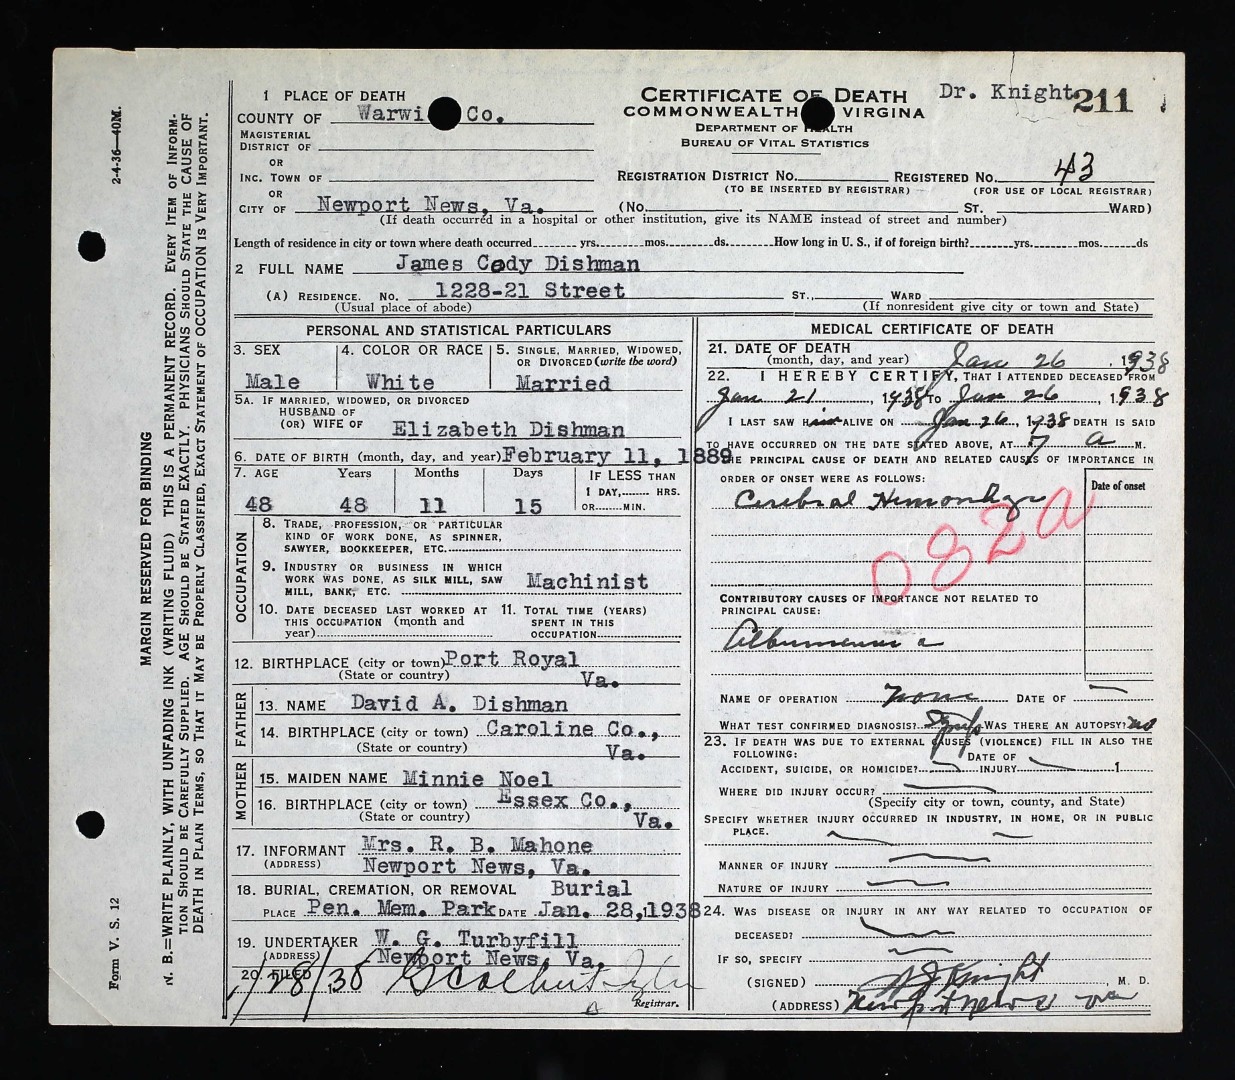 Dr. Knight
211
1 PLACE OF DEATH
COUNTY OF Warwi Co.
MAGISTERIAL
DISTRICT OF
OR
INC. TOWN OF
OR
CITY OF Newport News, Va.
CERTIFICATE OF DEATH
COMMONWEALTH VIRGINA
DEPARTMENT OF HEALTH
BUREAU OF VITAL STATISTICS
REGISTRATION DISTRICT NO. REGISTERED NO. 43
(TO BE INSERTED BY REGISTRAR) (FOR USE OF LOCAL REGISTRAR)
(No. ST. WARD)
(If death occurred in a hospital or other institution, give its NAME instead of street and number)
Length of residence in city or town where death occurred yrs. mos. ds. How long in U. S., if of foreign birth? yrs. mos. ds
2 FULL NAME James Cody Dishman
(A) RESIDENCE. No. 1228-21 Street ST., WARD
(Usual place of abode) (If nonresident give city or town and State)
PERSONAL AND STATISTICAL PARTICULARS
3. SEX 4. COLOR OR RACE 5. SINGLE, MARRIED, WIDOWED,
OR DIVORCED (write the word)
Male White Married
5A. IF MARRIED, WIDOWED, OR DIVORCED
HUSBAND OF
(OR) WIFE OF Elizabeth Dishman
6. DATE OF BIRTH (month, day, and year) February 11, 1889
7. AGE Years Months Days IF LESS THAN
1 DAY, HRS.
48 48 11 15 OR MIN.
OCCUPATION
8. TRADE, PROFESSION, OR PARTICULAR
KIND OF WORK DONE, AS SPINNER,
SAWYER, BOOKKEEPER, ETC.
9. INDUSTRY OR BUSINESS IN WHICH
WORK WAS DONE, AS SILK MILL, SAW
MILL, BANK, ETC. Machinist
10. DATE DECEASED LAST WORKED AT 11. TOTAL TIME (YEARS)
THIS OCCUPATION (month and SPENT IN THIS
year) OCCUPATION
12. BIRTHPLACE (city or town) Port Royal
(State or country) Va.
FATHER
13. NAME David A. Dishman
14. BIRTHPLACE (city or town) Caroline Co.,
(State or country) Va.
MOTHER
15. MAIDEN NAME Minnie Noel
16. BIRTHPLACE (city or town) Essex Co.,
(State or country) Va.
17. INFORMANT Mrs. R. B. Mahone
(ADDRESS) Newport News, Va.
18. BURIAL, CREMATION, OR REMOVAL Burial
PLACE Pen. Mem. Park DATE Jan. 28, 1938
19. UNDERTAKER W. G. Turbyfill
(ADDRESS) Newport News, Va.
20. FILED 1/28/38
Registrar.
MEDICAL CERTIFICATE OF DEATH
21. DATE OF DEATH
(month, day, and year) Jan 26, 1938
22. I HEREBY CERTIFY, THAT I ATTENDED DECEASED FROM
Jan 21, 1938 TO Jan 26, 1938
I LAST SAW Him ALIVE ON Jan 26, 1938 DEATH IS SAID
TO HAVE OCCURRED ON THE DATE STATED ABOVE, AT 7 a M.
THE PRINCIPAL CAUSE OF DEATH AND RELATED CAUSES OF IMPORTANCE IN
ORDER OF ONSET WERE AS FOLLOWS: Date of onset
Cerebral
082a
CONTRIBUTORY CAUSES OF IMPORTANCE NOT RELATED TO
PRINCIPAL CAUSE:
NAME OF OPERATION none DATE OF
WHAT TEST CONFIRMED DIAGNOSIS? WAS THERE AN AUTOPSY? no
23. IF DEATH WAS DUE TO EXTERNAL CAUSES (VIOLENCE) FILL IN ALSO THE
FOLLOWING: DATE OF
ACCIDENT, SUICIDE, OR HOMICIDE? INJURY 1
WHERE DID INJURY OCCUR?
(Specify city or town, county, and State)
SPECIFY WHETHER INJURY OCCURRED IN INDUSTRY, IN HOME, OR IN PUBLIC
PLACE.
MANNER OF INJURY
NATURE OF INJURY
24. WAS DISEASE OR INJURY IN ANY WAY RELATED TO OCCUPATION OF
DECEASED?
IF SO, SPECIFY
(SIGNED) Knight, M. D.
(ADDRESS) Newport News Va
2-4-36—40M.
MARGIN RESERVED FOR BINDING
Form V. S. 12
N. B.=WRITE PLAINLY, WITH UNFADING INK (WRITING FLUID) THIS IS A PERMANENT RECORD. EVERY ITEM OF INFORM-
TION SHOULD BE CAREFULLY SUPPLIED. AGE SHOULD BE STATED EXACTLY. PHYSICIANS SHOULD STATE THE CAUSE OF
DEATH IN PLAIN TERMS, SO THAT IT MAY BE PROPERLY CLASSIFIED, EXACT STATEMENT OF OCCUPATION IS VERY IMPORTANT.